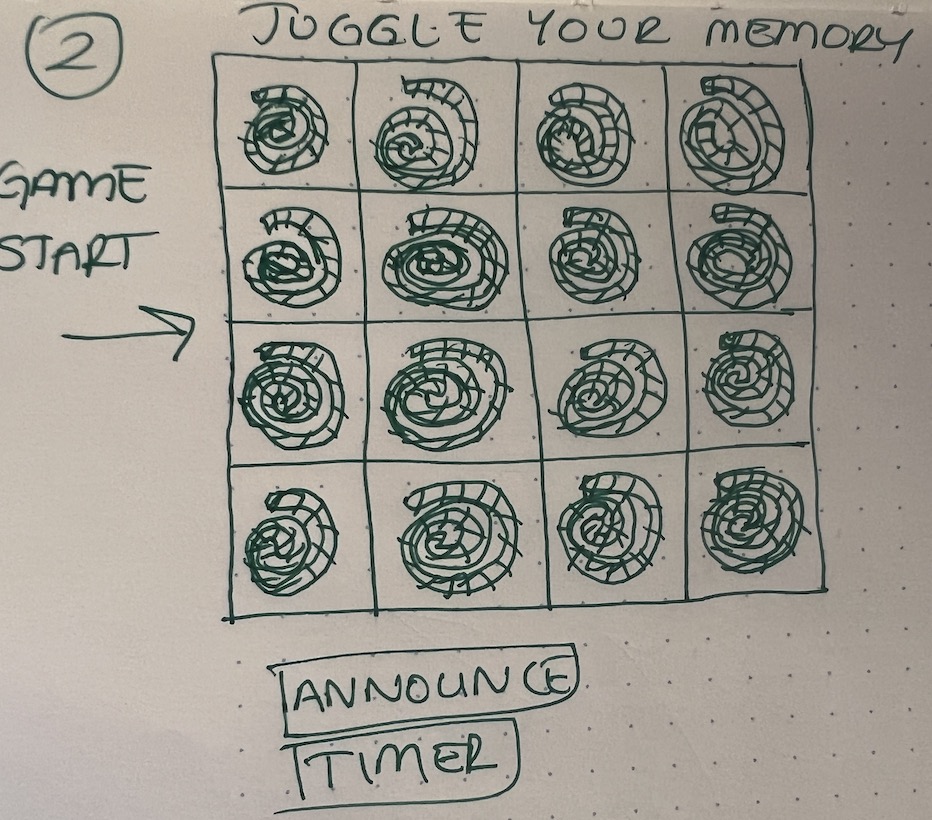 2
JUGGLE YOUR MEMORY
GAME
START
ANNOUNCE
TIMER